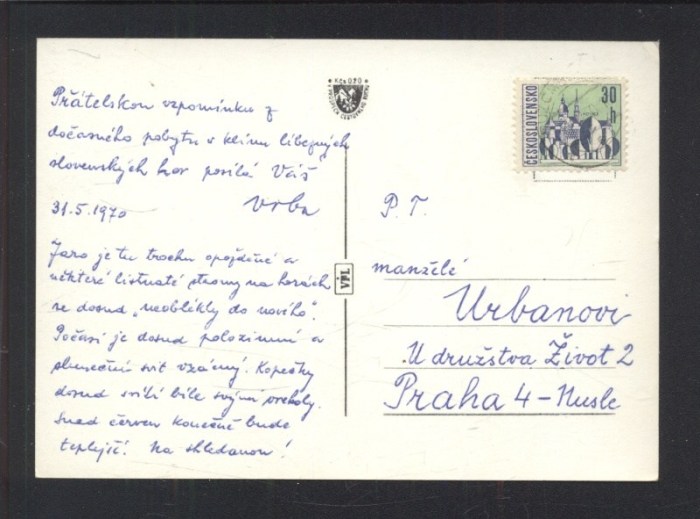 Přátelskou vzpomínku z
dočasného pobytu v klínu libezných
slovenských hor posílá Váš
Vrba
31.5.1970
Jaro je tu trochu opožděné a
některé listnaté stromy na horách
se dosud „neoblékly do nového".
Počasí je dosud polozimní a
sluneční svit vzácný. Kopečky
dosud svítí bíle svými vrcholy.
Snad červen konečně bude
teplejší! Na shledanou!
Kčs 0,30
VPL
ČESKOSLOVENSKO
30 h
P. T.
manželé
Urbanovi
U družstva Život 2
Praha 4 - Nusle